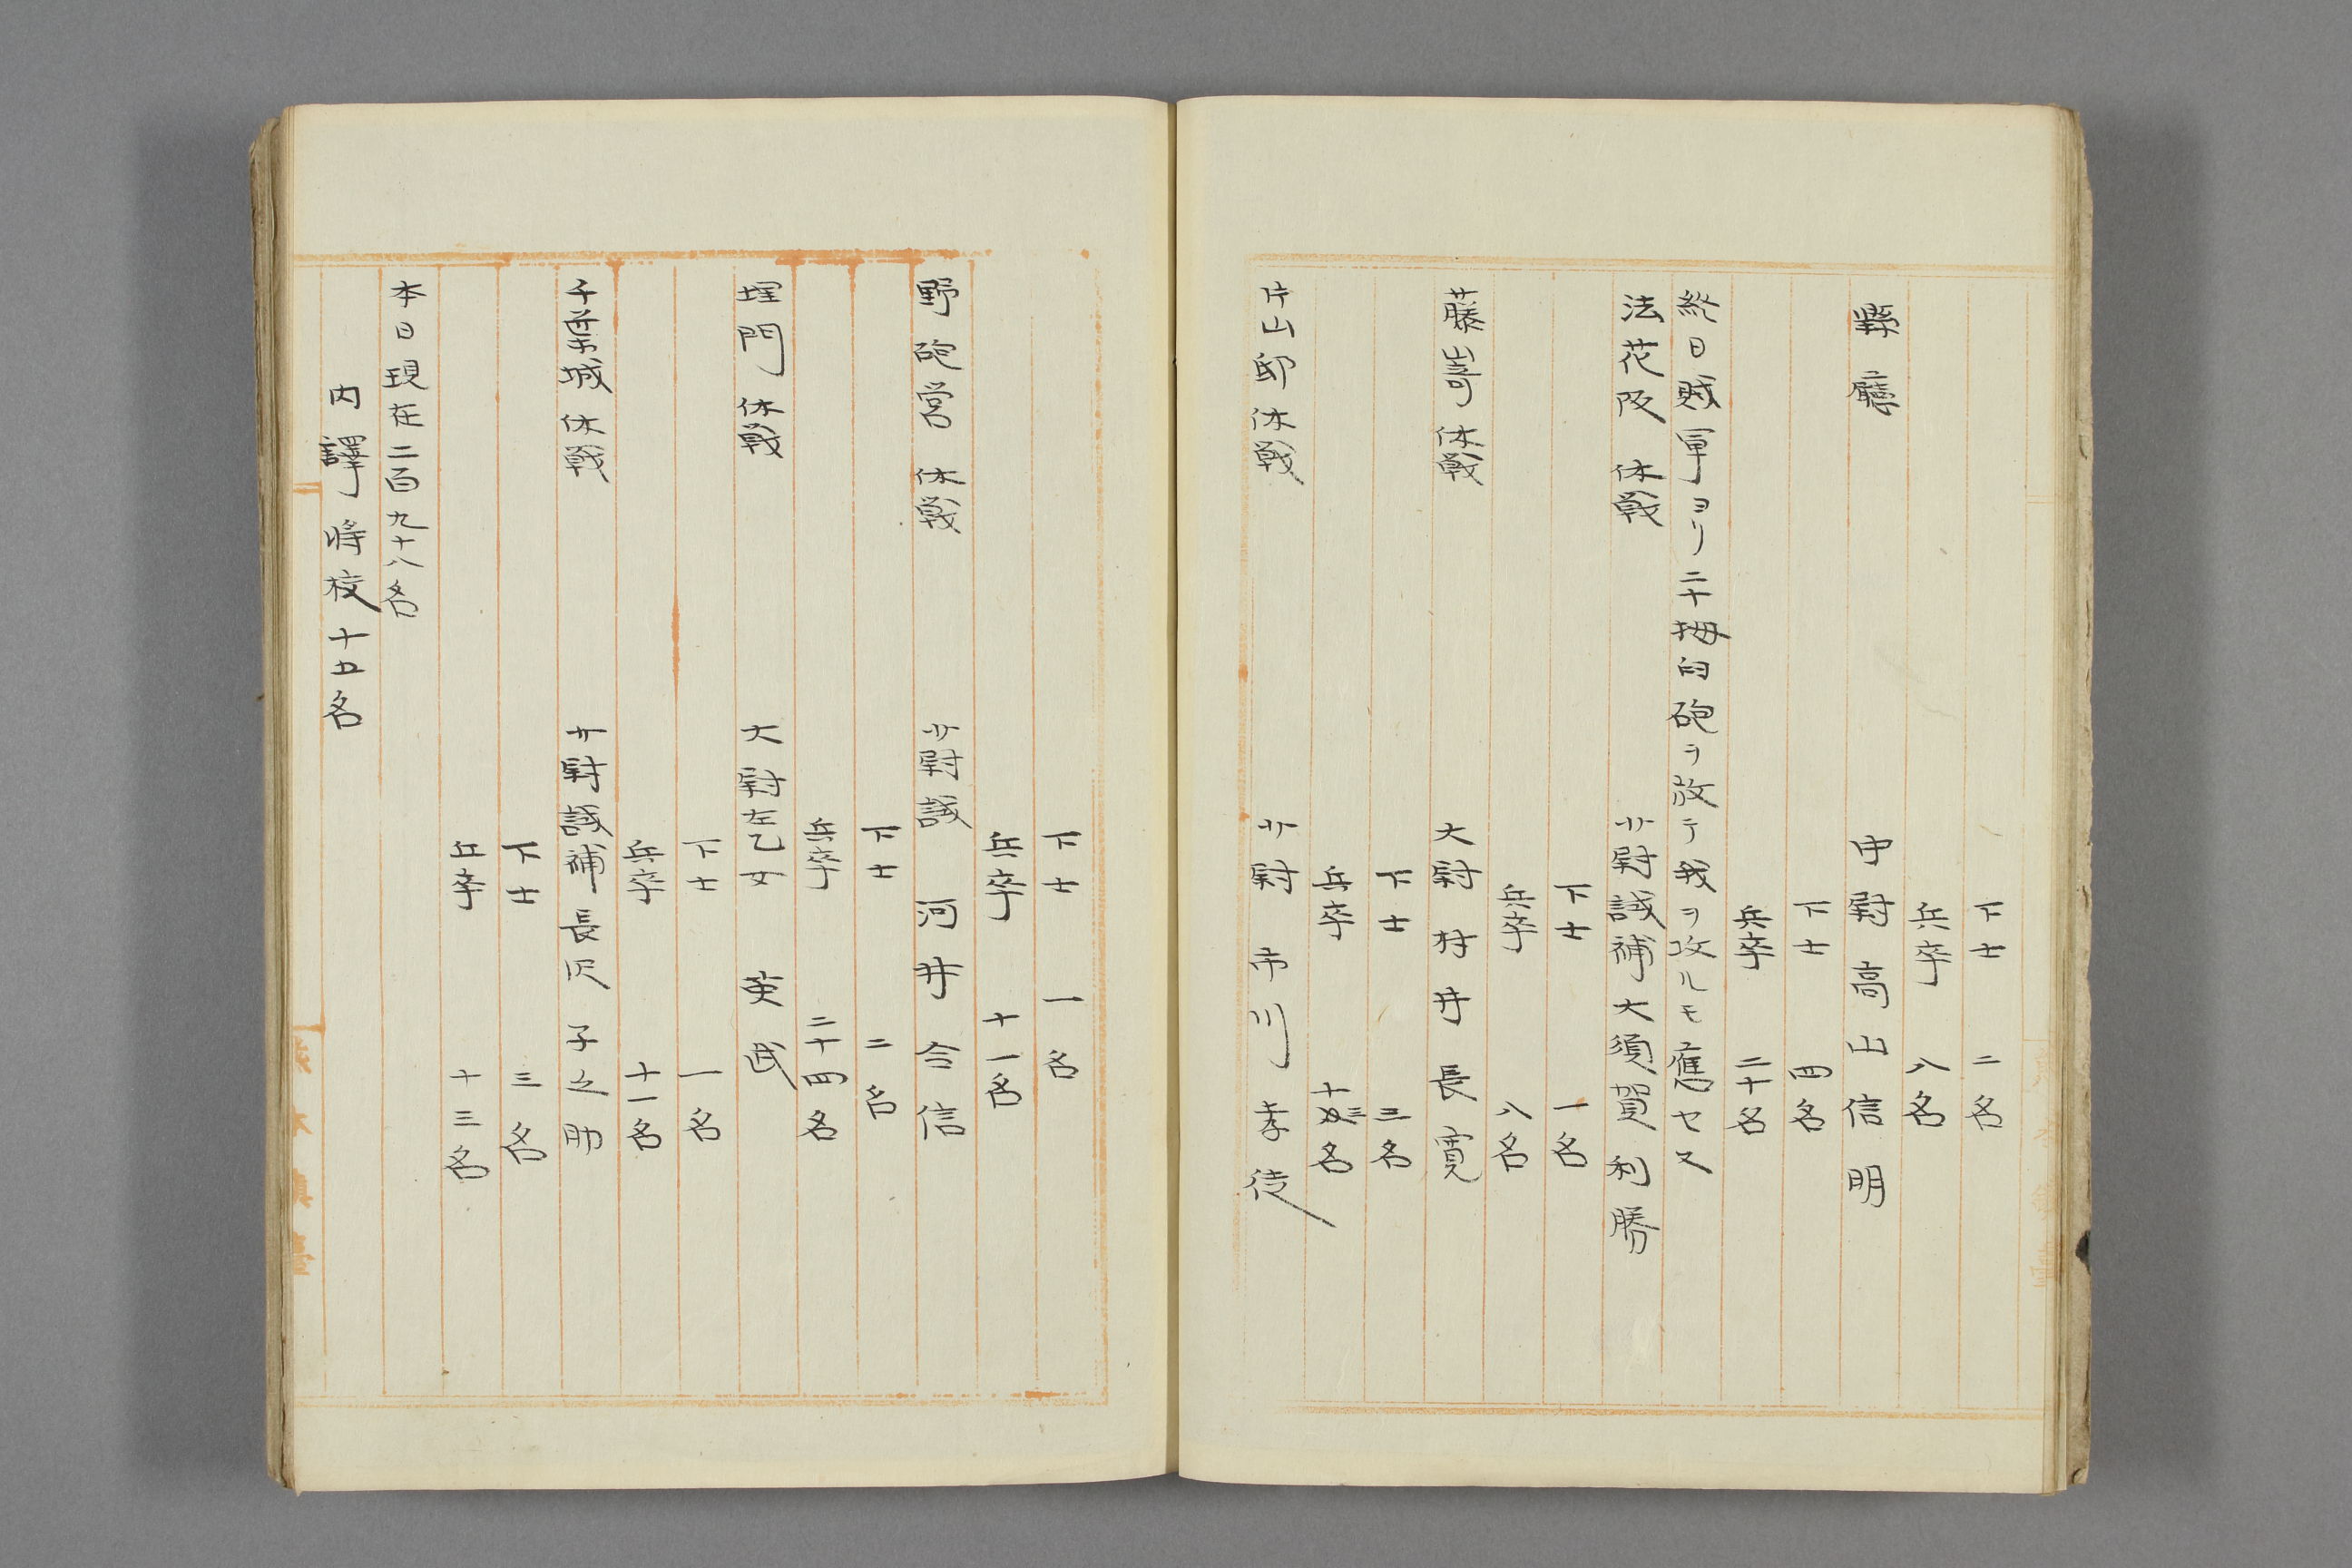 下士　二名
兵卒　八名
縣廳　中尉　高山信明
下士　四名
兵卒　二十名
終日賊軍ヨリ二十拇臼砲ヲ放テ我ヲ攻ルモ應セス
法花阪　休戦　少尉試補　大須賀利勝
下士　一名
兵卒　八名
藤嵜　休戦　大尉　村井長寛
下士　三名
兵卒　名
片山邸　休戦　少尉　市川孝徒
下士　一名
兵卒　十一名
野砲営　休戦　少尉試　河井令信
下士　二名
兵卒　二十四名
埋門　休戦　大尉　左乙女　英武
下士　一名
兵卒　十一名
千葉城　休戦　少尉試補　長沢子之助
下士　三名
兵卒　十三名
本日現在二百九十八名
内譯　将校十五名